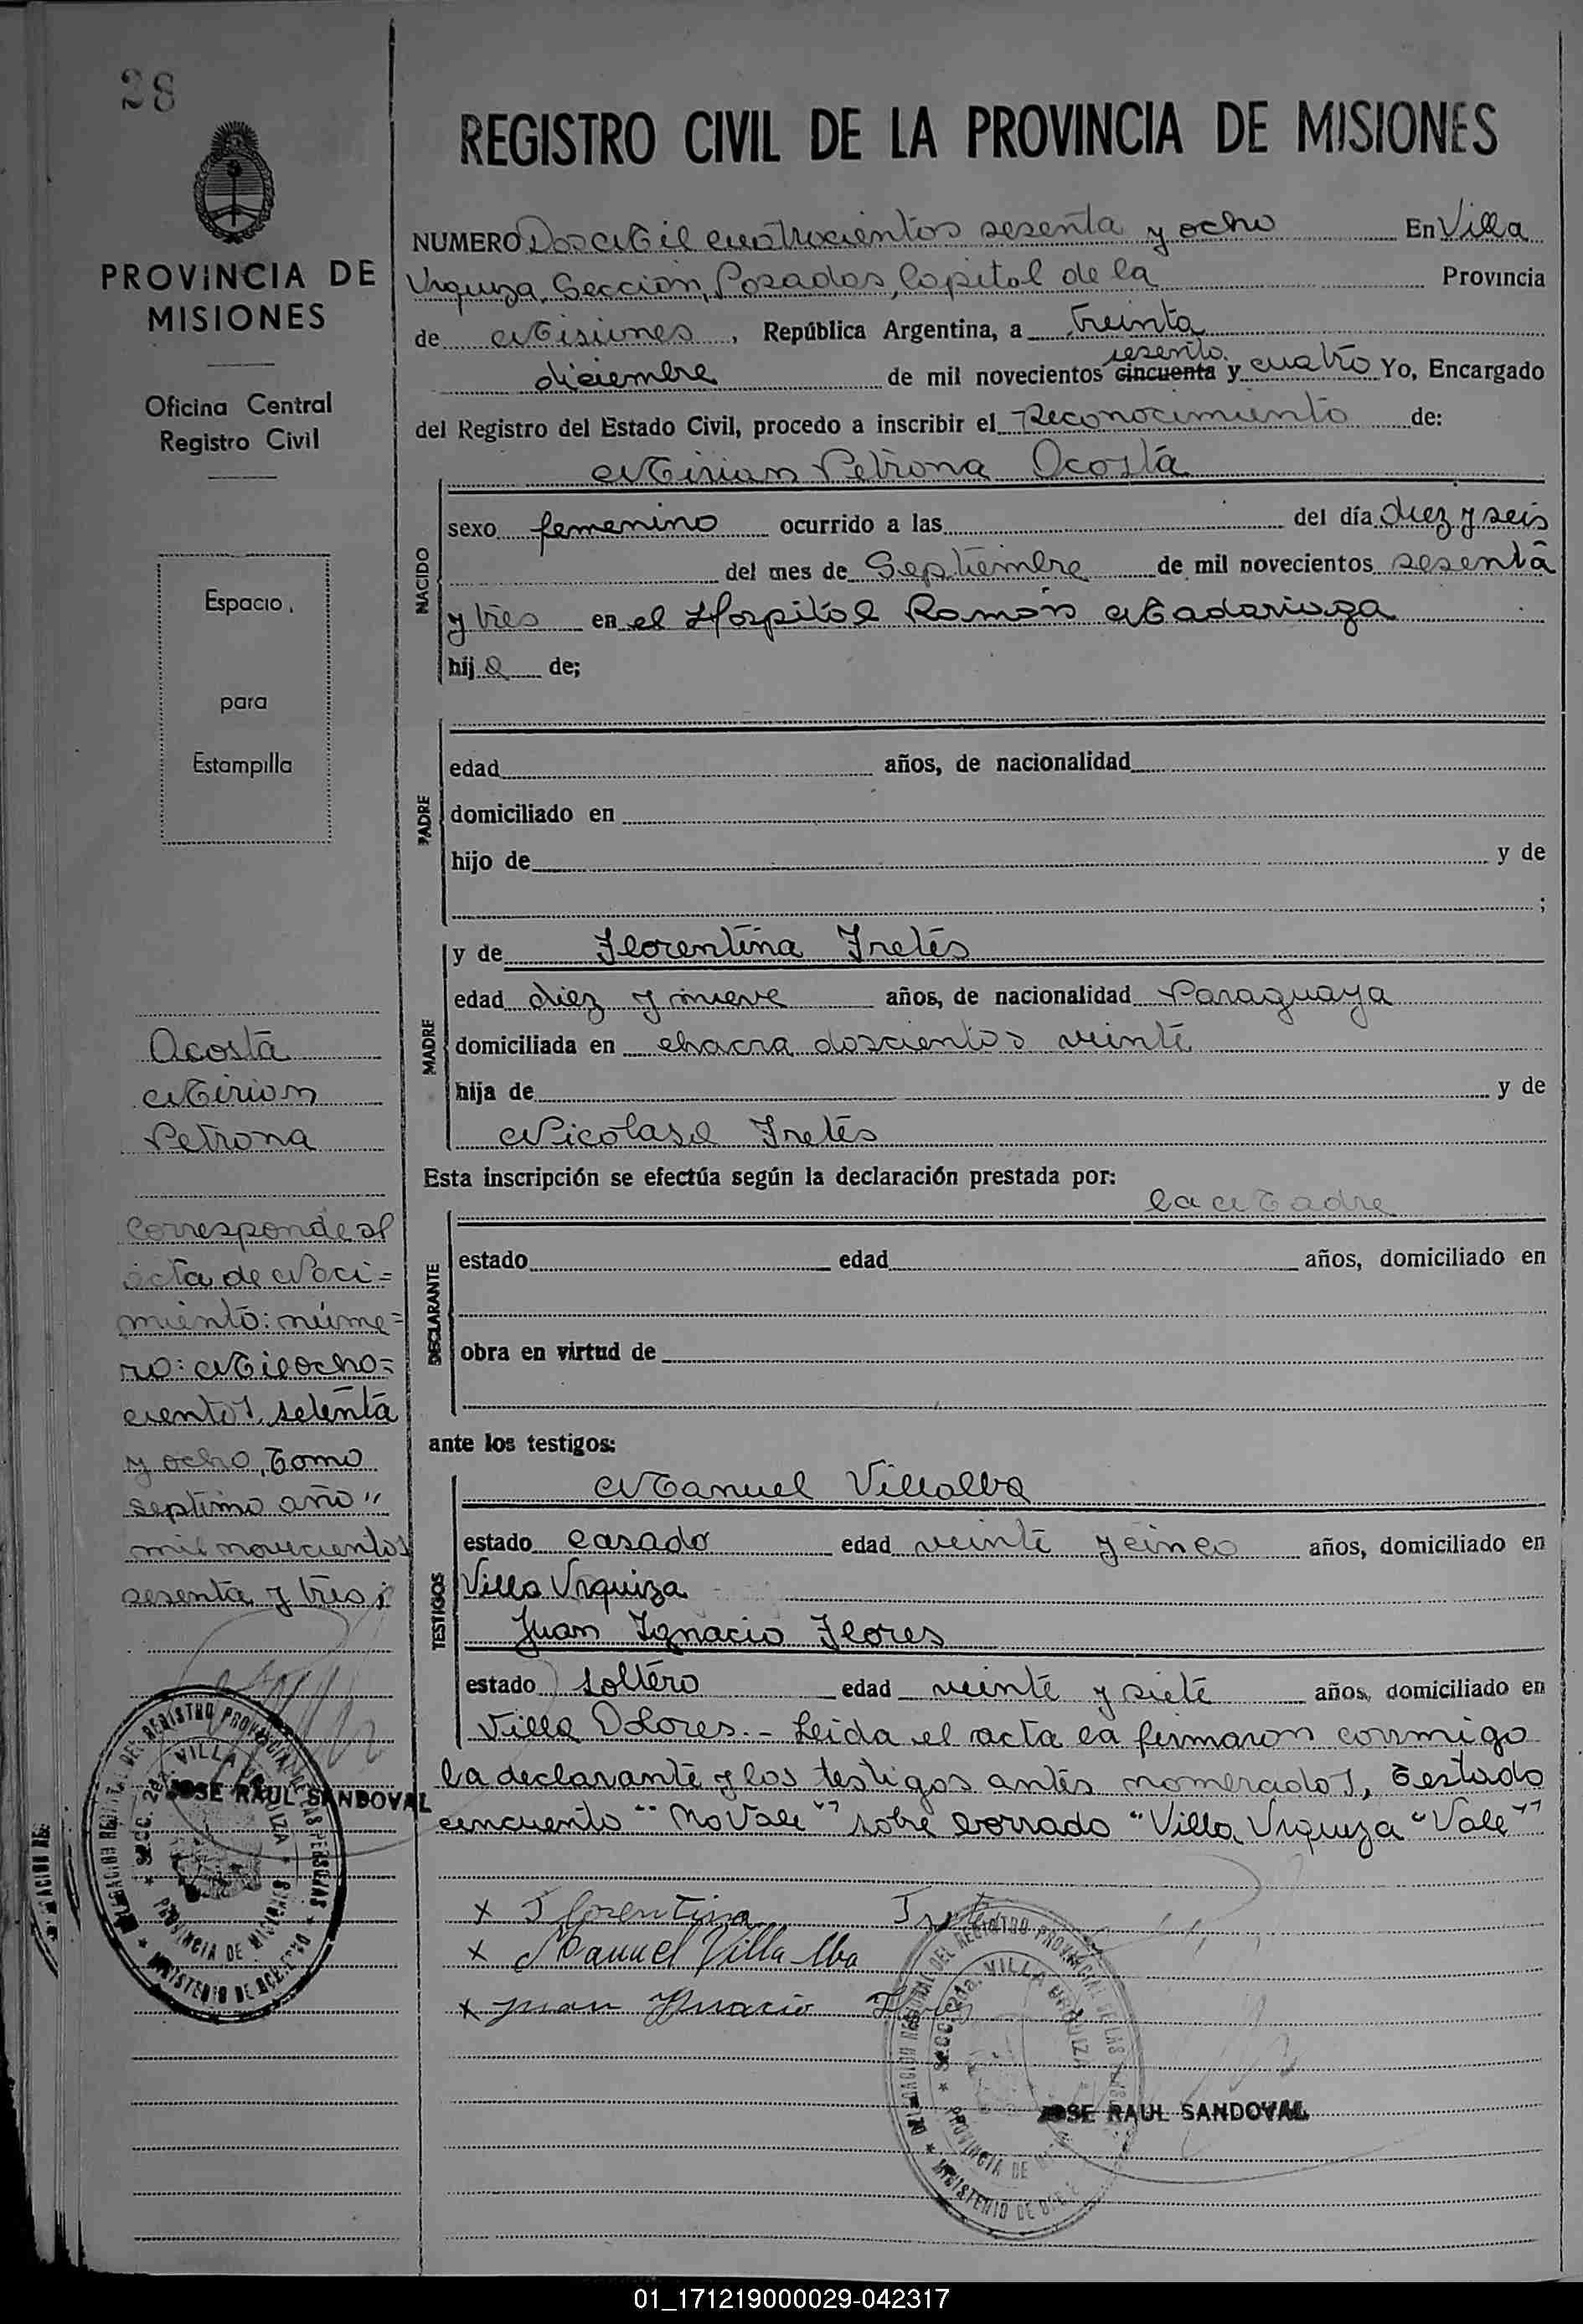 28
REGISTRO CIVIL DE LA PROVINCIA DE MISIONES
PROVINCIA DE
MISIONES
Oficina Central
Registro Civil
Espacio
para
Estampilla
Acosta
Mirian
Petrona
Corresponde al
acta de Naci=
miento: núme=
ro: Mil ocho=
cientos setenta
y ocho, Tomo
septimo año "
mil novecientos
sesenta y tres;
JOSE RAUL SANDOVAL
NUMERO Dos Mil cuatrocientos sesenta y ocho En Villa
Urquiza, Seccion, Posadas, Capital de la Provincia
de Misiones, República Argentina, a treinta
sesenta
diciembre de mil novecientos cincuenta y cuatro Yo, Encargado
del Registro del Estado Civil, procedo a inscribir el Reconocimiento de:
Mirian Petrona Acosta
NACIDO
sexo femenino ocurrido a las del día diez y seis
del mes de Septiembre de mil novecientos sesenta
y tres en el Hospital Ramón Madariaga
hija de;
PADRE
edad años, de nacionalidad
domiciliado en
hijo de y de
;
MADRE
y de Florentina Fretes
edad diez y nueve años, de nacionalidad Paraguaya
domiciliada en chacra doscientos veinte
hija de y de
Nicolasa Fretes
Esta inscripción se efectúa según la declaración prestada por:
la Madre
DECLARANTE
estado edad años, domiciliado en
obra en virtud de
ante los testigos:
TESTIGOS
Manuel Villalba
estado casado edad veinte y cinco años, domiciliado en
Villa Urquiza
Juan Ignacio Flores
estado soltero edad veinte y siete años, domiciliado en
Villa Dolores.- Leida el acta la firmaron conmigo
la declarante y los testigos antes nomerados, Testado
cincuenta "No Vale" sobre borrado "Villa Urquiza "Vale"
x Florentina Fretes
x Manuel Villalba
x Juan Ignacio Flores
DELEGACION REGIONAL DEL REGISTRO PROVINCIAL DE LAS PERSONAS
SECC. 2da. VILLA URQUIZA
PROVINCIA DE MISIONES
MINISTERIO DE GOBIERNO
JOSE RAUL SANDOVAL
01_171219000029-042317